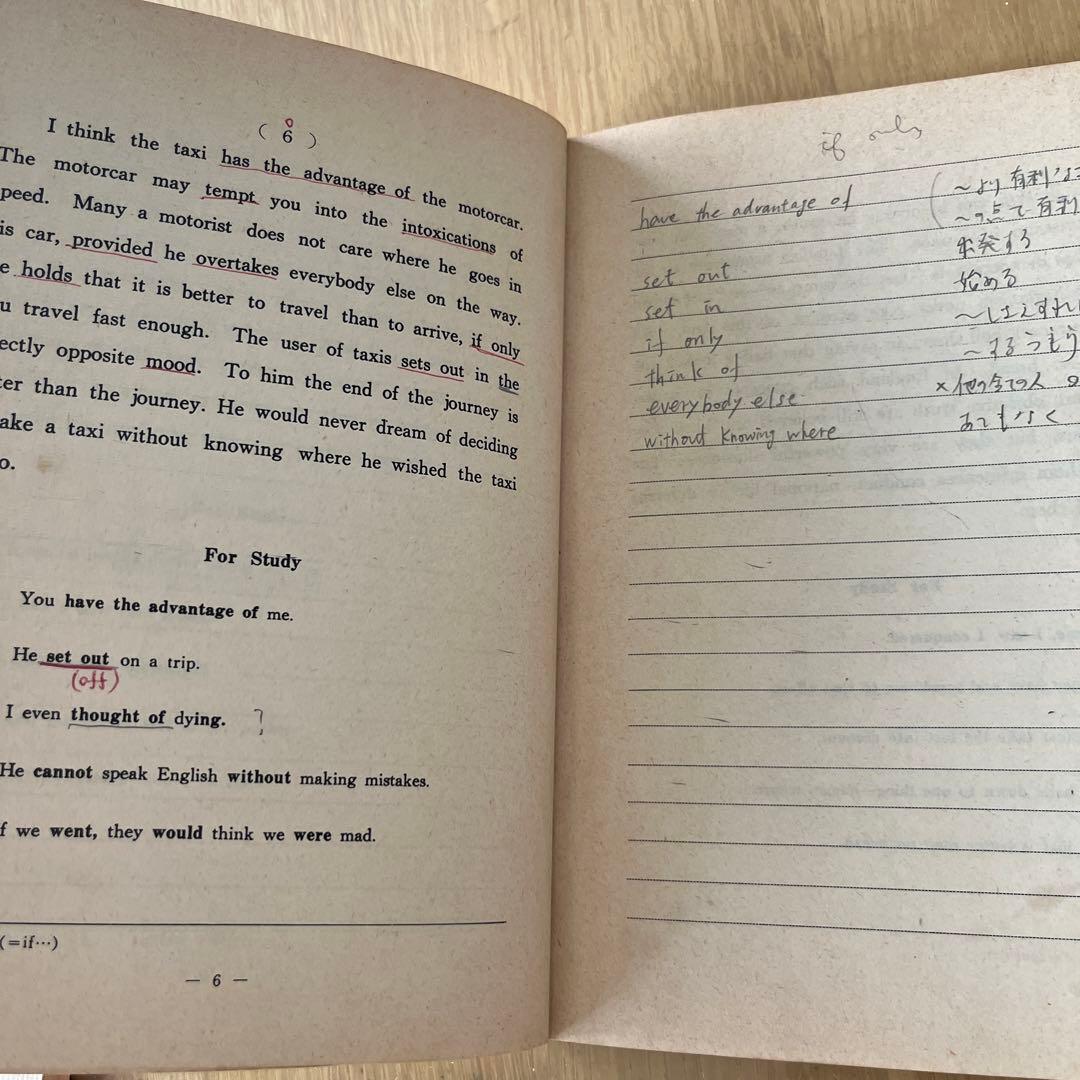 ( 6 )
I think the taxi has the advantage of the motorcar.
The motorcar may tempt you into the intoxications of
peed. Many a motorist does not care where he goes in
is car, provided he overtakes everybody else on the way.
e holds that it is better to travel than to arrive, if only
u travel fast enough. The user of taxis sets out in the
ectly opposite mood. To him the end of the journey is
ter than the journey. He would never dream of deciding
ake a taxi without knowing where he wished the taxi
o.
For Study
You have the advantage of me.
He set out on a trip.
(off)
I even thought of dying. ?
He cannot speak English without making mistakes.
f we went, they would think we were mad.
(=if…)
— 6 —
if only
have the advantage of ( 〜より有利な
〜の点で有利
set out 出発する
set in 始める
if only 〜しさえすれ
think of 〜するうもう
everybody else × 他の全ての人
without knowing where あてもなく